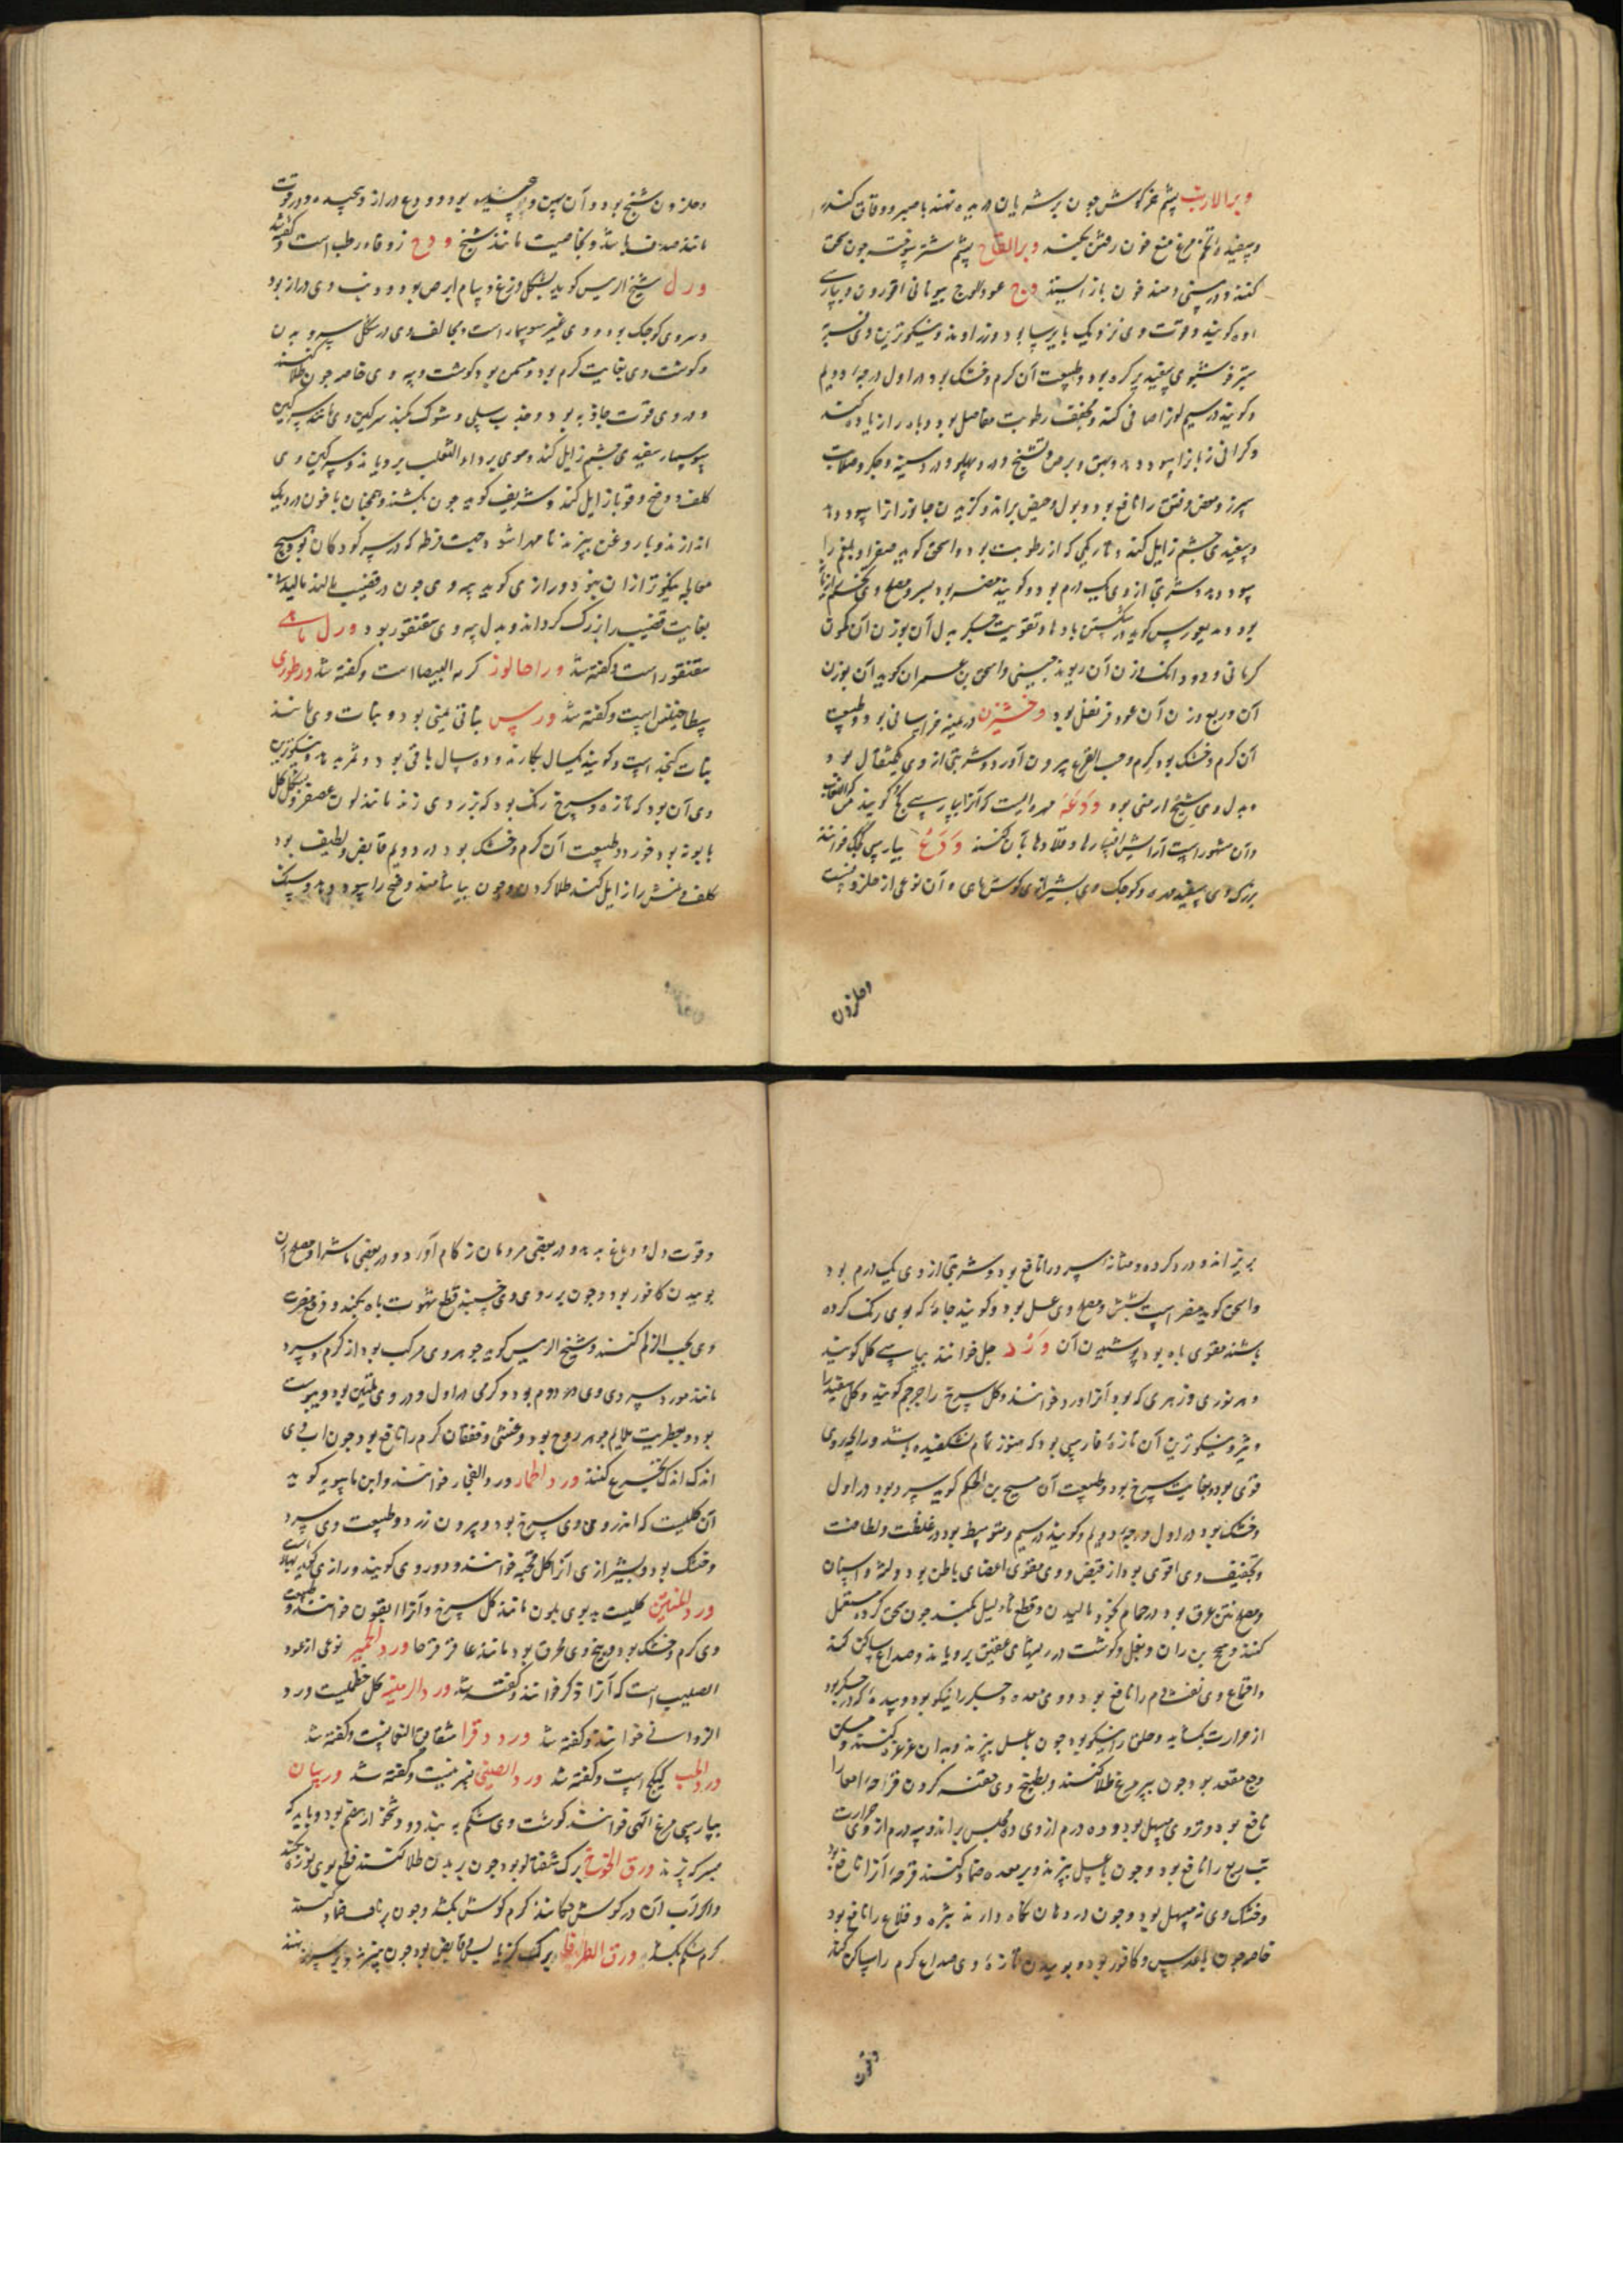 وبر الارنب پشم خرگوش چون بر شریان دریده نهند با صبر و دقاق کندر
و سفیده تخم مرغ منع خون رفتن بکند وبر القاح پشم شتر سوخته چون سحق
کنند و در بینی دمند خون باز ایستد وج عود الوج بیونانی اقورون و بپارسی
کویند و قوت وی نزدیک بایرسا بود و زراوند و نیکوترین وی
سبتر خوشبوی سفید پر کره بود و طبیعت آن کرم و خشک بود در اول درجه دویم
و کویند در سیم لون را صافی کند و مجفف رطوبت مفاصل بود و باه را زیاده کند
و کرانی زبان را سود دهد و بهق و برص و تشنج و درد پهلو و درد سینه و جکر و صلابت
سپرز و مغص و فتق را نافع بود و بول و حیض براند و کزیدن جانوران را سود دهد
و سفیدی چشم زایل کند و تاریکی که از رطوبت بود و اسحق کوید صفرا و بلغم را
سود دهد و شربتی از وی یک درم بود و کویند مضر بود بسر و مصلح وی
بود و دیسقوریدس کوید در شکستن بادها و تقویت جکر بدل آن بوزن آن کمون
کرمانی و دو دانک وزن آن ریوند چینی و اسحق بن عمران کوید آن بوزن
آن و ربع وزن آن عود قرنفل بود وخشیزن درمنه خراسانی بود و طبیعت
آن کرم و خشک بود کرم و حب القرع بیرون آورد و شربتی از وی یک مثقال بود و
بدل وی شیح ارمنی بود وَدَعَه مهره ایست که آنرا بپارسی کویند
و آن مشهور است آرایش افسارها و قلادها بآن کنند وَدَع بپارسی خوانند
بزرک وی سفید مهره و کوچک وی بشیرازی کوش ماهی و آن نوعی از حلزونست
وحلزون
وحلزون شنج بود و آن پهن بود و ودع دراز و پیچیده و در قوت
مانند صدف باشد و بخاصیت مانند شنج ودح زوفاء رطب است و گفته شد
ورل شیخ الرئیس کوید بشکل وزغ و سام ابرص بود و ذنب وی دراز بود
و سر وی کوچک بود و وی غیر سوسمار است و مخالف وی در شکل سر و بدن
و کوشت وی بغایت کرم بود و مسمن بود کوشت و پیه وی خاصه چون طلا کنند
و در وی قوت جاذبه بود و جذب سلی و شوک بکند سرکین وی مانند سرکین
سوسمار سفیدی چشم زایل کند و موی بر داء الثعلب برویاند و سرکین وی
کلف و وضح و قوبا زایل کند و شریف کوید چون بکشند و همچنان با خون در دیک
اندازند و با روغن بپزند تا مهرا شود جهت قرظه که در سر کودکان بود و هیچ
معالجه نیکوتر از آن نبود و رازی کوید پیه وی چون در قضیب مالند مالیدنی
بغایت قضیب را بزرک کرداند و بدل پیه وی سقنقور بود ورل مائی
سقنقور است و گفته شد وراهالوز کرمه البیضا است و گفته شد ورطوری
بسطاحینس است و گفته شد ورس نباتی یمنی بود و نبات وی مانند
نبات کنجد است و کویند یک سال بکارند و ده سال باقی بود و ثمر بدهد و نیکوترین
وی آن بود که تازه و سرخ رنک بود که بزردی زند مانند لون عصفر و بشکل کل
بابونه بود خورد و طبیعت آن کرم و خشک بود در دویم قابض و لطیف بود
کلف و نمش را زایل کند طلا کردن و چون بیاشامند وضح را سود دهد و سنک
بریزاند و درد کرده و مثانه سرد را نافع بود و شربتی از وی یک درم بود
و اسحق کوید مضر است بشش و مصلح وی عسل بود و کویند جامه که بوی رنک کرده
باشند مقوی باه بود پوشیدن آن وَرْد جل خوانند بپارسی کل کویند
و هر نوری و زهری که بود آنرا ورد خوانند و کل سرخ را جرجم کویند و کل سفید را
وثیر و نیکوترین آن تازه فارسی بود که هنوز تمام نشکفیده باشد و رایحه وی
قوی بود و بغایت سرخ بود و طبیعت آن مسیح بن الحکم کوید سرد بود در اول
و خشک بود در اول درجه دویم و کویند در سیم و متوسط بود در غلظت و لطافت
و تجفیف وی اقوی بود از قبض و وی مقوی اعضای باطن بود و لثه و اسنان
و مصلح نتن عرق بود و در حمام بخود مالیدن و قطع ثالیل بکند چون سحق کرده مستعمل
کنند و سحج بن ران و بغل و کوشت در ریشهای عمیق برویاند و صداع ساکن کند
و اقماع وی نفث دم را نافع بود و وی معده و جکر را نیکو بود و سده که در جکر بود
از حرارت بکشاید و حلق را نیکو بود چون با عسل بپزند و بدان غرغره کنند و مسکن
وجع مقعد بود چون بپر مرغ طلا کنند و بطبیخ وی حقنه کردن قرحه امعا را
نافع بود و تر وی مسهل بود و ده درم از وی ده مجلس براند و سه درم از وی حرارت
تب ربع را نافع بود و چون با عسل بپزند و بر معده ضماد کنند قرحه آنرا نافع بود
و خشک وی نه مسهل بود و چون در دهان نکاه دارند بثره و قلاع را نافع بود
خاصه چون با عدس و کافور بود و بوییدن تازه وی صداع کرم را ساکن کند
و قوت دل و دماغ بدهد و در بعضی مردمان زکام آورد و در بعضی باشد و مصلح آن
بوییدن کافور بود و چون بر روی وی خسبند قطع شهوت باه بکند و دفع مضرت
وی بحب الزلم کنند و شیخ الرئیس کوید جوهر وی مرکب بود از کرم و سرد
مانند مورد سردی وی در دوم بود و کرمی در اول و در وی تلیین بود و یبوست
بود و بعطریت ملایم جوهر روح بود و غشی و خفقان کرم را نافع بود چون آب وی
اندک اندک تجرع کنند ورد الحمار ورد الفجار خوانند و ابن ماسویه کوید
آن کلیست که اندرون وی سرخ بود و بیرون زرد و طبیعت وی سرد
و خشک بود و بشیرازی آنرا کل قحبه خوانند و دوروی کویند و رازی کوید بهار است
ورد المنتن کلیست بد بوی بلون مانند کل سرخ و آنرا القون خوانند و طبیعت
وی کرم و خشک بود و بیخ وی محرق بود مانند عاقرقرحا ورد الحمیر نوعی از عود
الصلیب است که آنرا ذکر خوانند و گفته شد ورد الزینه کل خطمیست ورد
الزوانی خوانند و گفته شد ورد دقرا شقایق النعمانست و گفته شد
ورد الحب کبیکج است و گفته شد ورد الصینی نسرینست و گفته شد ورسان
بپارسی مرغ الهی خوانند کوشت وی شکم ببندد و و باید که
بسرکه پزند ورق الخوخ برک شفتالو بود چون بر بدن طلا کنند قطع بوی نوره بکند
و اگر آب آن در کوش چکانند کرم کوش بکشد و چون بر ناف ضماد کنند
کرم شکم بکشد ورق الطرفا برک کز قابض بود چون بپزند و بر سپرز نهند